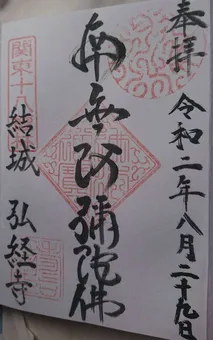 奉拝
令和二年八月二十九日
南無阿弥陀佛
関東十
結城 弘経寺